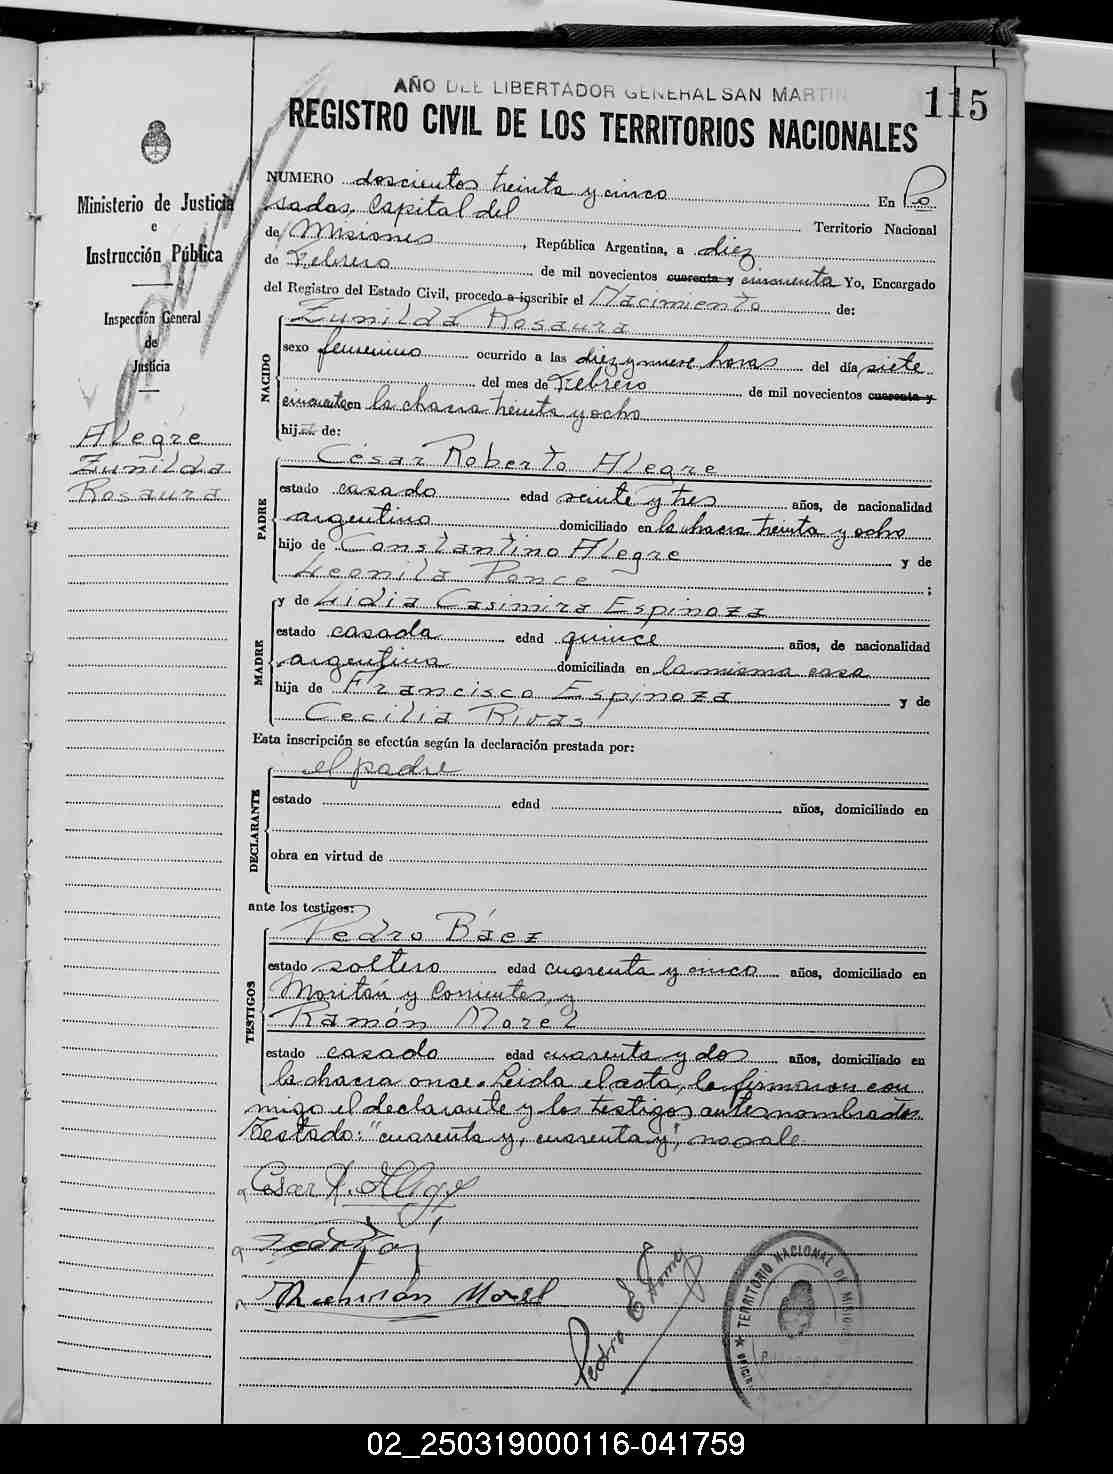 AÑO DEL LIBERTADOR GENERAL SAN MARTIN
115
REGISTRO CIVIL DE LOS TERRITORIOS NACIONALES
Ministerio de Justicia
e
Instrucción Pública
Inspección General
de
Justicia
Alegre
Zunilda
Rosaura
NUMERO doscientos treinta y cinco En Po
sadas, Capital del Territorio Nacional
de Misiones, República Argentina, a diez
de Febrero de mil novecientos cuarenta y cincuenta Yo, Encargado
del Registro del Estado Civil, procedo a inscribir el Nacimiento de:
Zunilda Rosaura
NACIDO
sexo femenino ocurrido a las diez y nueve horas del día siete
del mes de Febrero de mil novecientos cuarenta y
cincuenta en la chacra treinta y ocho
hij de:
César Roberto Alegre
PADRE
estado casado edad veinte y tres años, de nacionalidad
argentino domiciliado en la chacra treinta y ocho
hijo de Constantino Alegre y de
Leonila Ponce ;
y de Lidia Casimira Espinoza
MADRE
estado casada edad quince años, de nacionalidad
argentina domiciliada en la misma casa
hija de Francisco Espinoza y de
Cecilia Rivas
Esta inscripción se efectúa según la declaración prestada por:
el padre
DECLARANTE
estado edad años, domiciliado en
obra en virtud de
ante los testigos:
Pedro Báez
TESTIGOS
estado soltero edad cuarenta y cinco años, domiciliado en
y Corrientes, y
Ramón Morel
estado casado edad cuarenta y dos años, domiciliado en
la chacra once. Leida el acta, la firmaron con
migo el declarante y los testigos antes nombrados.
Testado: "cuarenta y, cuarenta y", no vale.
Cesar R. Alegre
Ramón Morel
Pedro E
TERRITORIO NACIONAL DE MISIONES